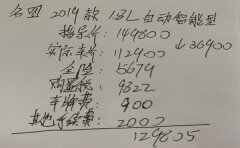 名图 2019款 1.8L 自动智能型
指导价: 149800
实际车价: 112900 ↓36900
全险: 5679
购置税: 9322
900
其他手续费: 2002
129605